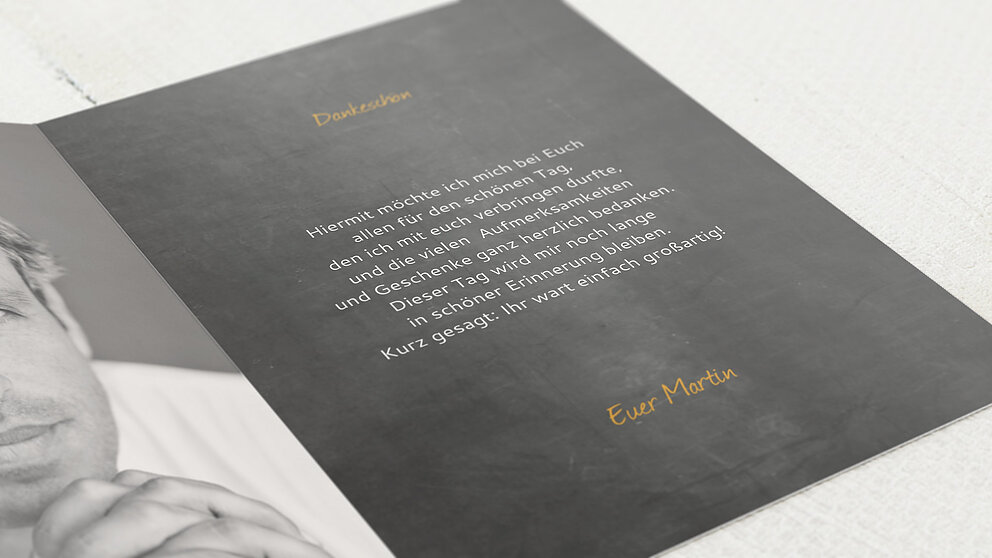 Dankeschön
Hiermit möchte ich mich bei Euch
allen für den schönen Tag,
den ich mit euch verbringen durfte,
und die vielen Aufmerksamkeiten
und Geschenke ganz herzlich bedanken.
Dieser Tag wird mir noch lange
in schöner Erinnerung bleiben.
Kurz gesagt: Ihr wart einfach großartig!
Euer Martin